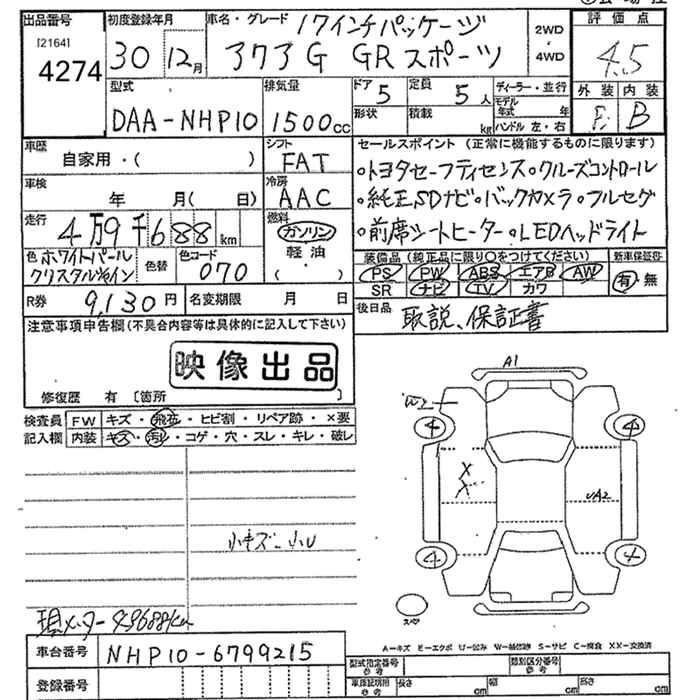 出品番号 初度登録年月 車名・グレード 17インチパッケージ 評価点
[2164] 4274
30 12月 アクア G GRスポーツ 2WD・4WD 4.5
型式 排気量 ドア 5 定員 5人 ディーラー・並行 外装 内装
DAA-NHP10 1500cc 形状 積載 kg モデル年式 年 ハンドル 左・右 B
車歴 シフト セールスポイント (正常に機能するものに限ります)
自家用・( ) FAT
・トヨタセーフティセンス・クルーズコントロール
車検 年 月( 日) 冷房 AAC
・純正SDナビ・バックカメラ・フルセグ
走行 4万9千688km 燃料 ガソリン 軽油 ( )
・前席シートヒーター・LEDヘッドライト
色 ホワイトパールクリスタルシャイン 色替 色コード 070
装備品 (純正品に限り○をつけてください) 新車保証書
PS PW ABS エアB AW 有・無
SR ナビ TV カワ
R券 9,130円 名変期限 月 日
後日品 取説、保証書
注意事項申告欄 (不具合内容等は具体的に記入して下さい)
映像出品
修復歴 有 〔箇所 〕
検査員記入欄 FW キズ・飛石・ヒビ割・リペア跡・×要
内装 キズ・汚れ・コゲ・穴・スレ・キレ・破レ
A1
W2
4 4
X
X
UA2
4 4
小キズ、小U
スペア
現メーター 49688km
A-キズ E-エクボ U-凹み W-補修跡 S-サビ C-腐食 XX-交換済
車台番号 NHP10-6799215
型式指定番号 参考 類別区分番号 参考
登録番号
車庫証明用 参考 長さ cm 幅 cm 高さ cm